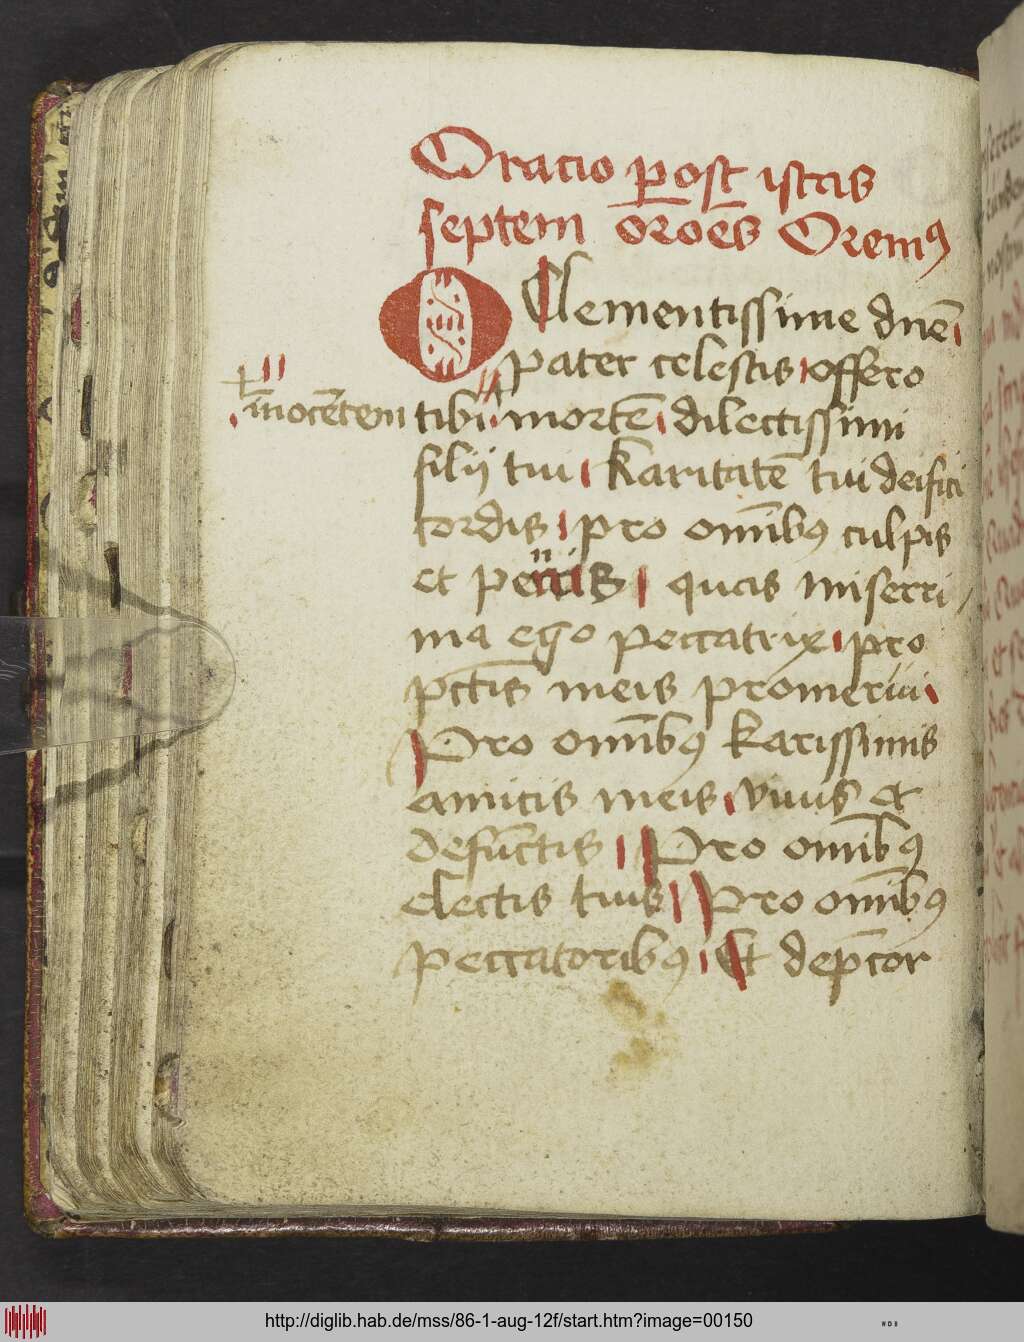 Oracio post istas
septem oroēs Oremꝯ
O Clementissime dn̄e
pater celestis offero
īnocētem tibi mortē dilectissimi
filij tui karitatē tui deifici
cordis pro om̄ibꝯ culpis
et penis quas miserri
ma ego peccatrix pro
pctīs meis promerui
Pro om̄ibꝯ karissimis
amicis meis viuis et
defūctis Pro om̄ibꝯ
electis tuis Pro om̄ibꝯ
peccatoribꝯ Et dep̄cor
http://diglib.hab.de/mss/86-1-aug-12f/start.htm?image=00150